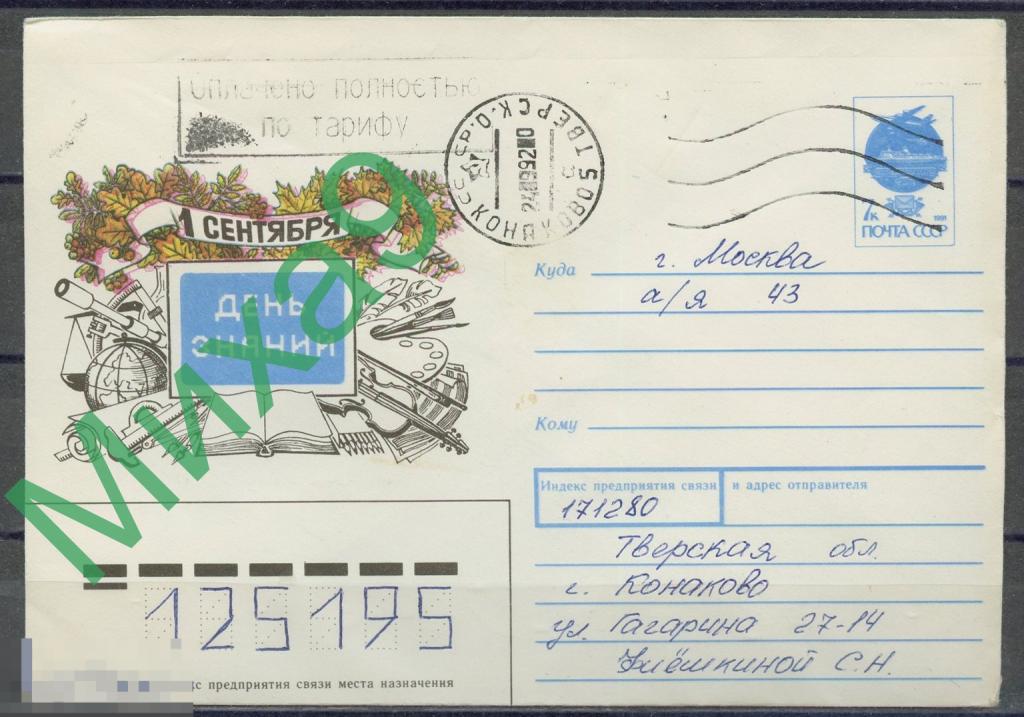 Оплачено полностью
по тарифу
СССР. КОНАКОВО5 ТВЕРСК.О.
1 СЕНТЯБРЯ
ДЕНЬ
ЗНАНИЙ
7к 1991
ПОЧТА СССР
Куда г. Москва
а/я 43
Кому
Индекс предприятия связи и адрес отправителя
171280
Тверская обл.
г. Конаково
ул. Гагарина 27-14
С.Н.
125195
предприятия связи места назначения
Миха9